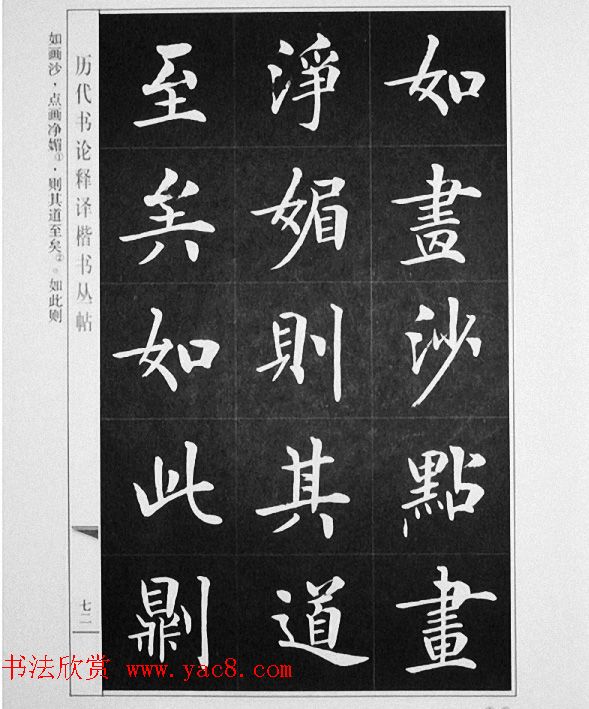 如畫沙點畫
淨媚則其道
至矣如此則
历代书论释译楷书丛帖
七二
如画沙，点画净媚①，则其道至矣②。如此则
书法欣赏 www.yac8.com